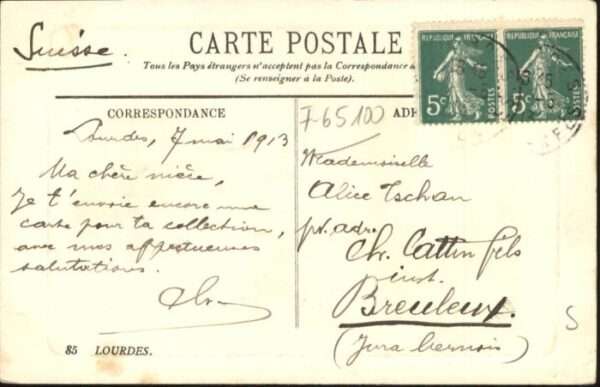 Suisse.
CARTE POSTALE
Tous les Pays étrangers n'acceptent pas la Correspondance
(Se renseigner à la Poste).
REPUBLIQUE FRANÇAISE
5c
POSTES
REPUBLIQUE FRANÇAISE
5c
POSTES
CORRESPONDANCE
Lourdes, 7 mai 1913
Ma chère nièce,
Je t'envoie encore une
carte pour ta collection,
avec mes affectueuses
salutations.
F-65100
ADR
Mademoiselle
Alice Tschan
pr. adr.
Ch. Cattin fils
inst.
Breuleux.
(Jura bernois)
S
85 LOURDES.